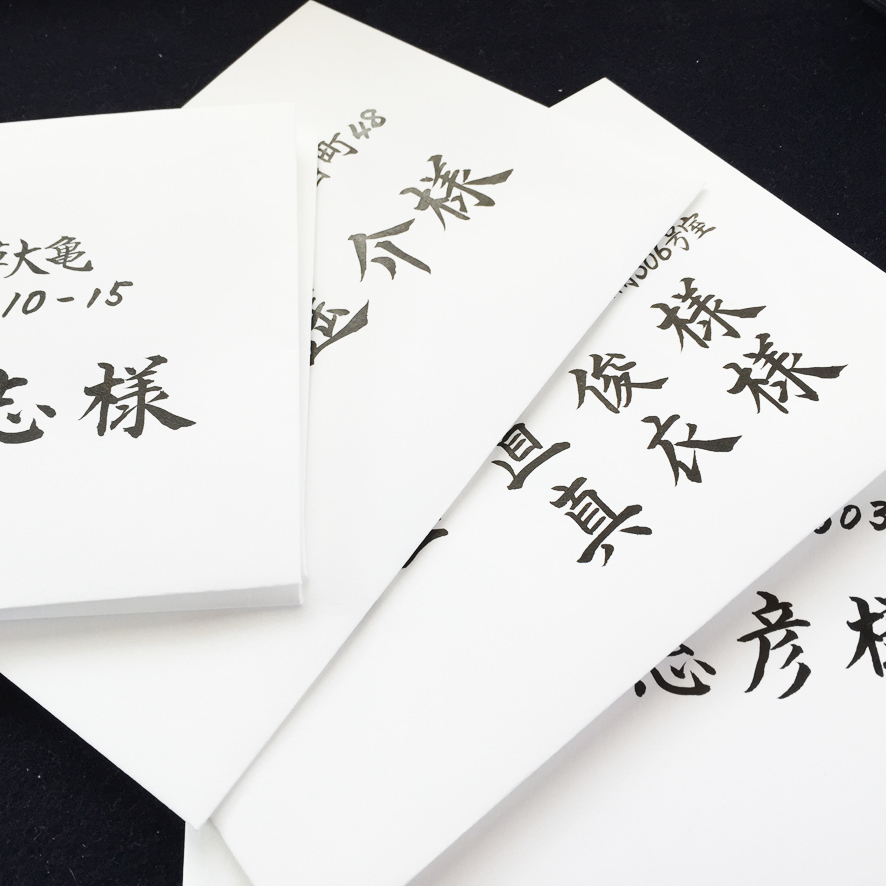 大亀
10-15
志 様
町48
介 様
306号室
直 俊 様
真 衣 様
303
志 彦 様